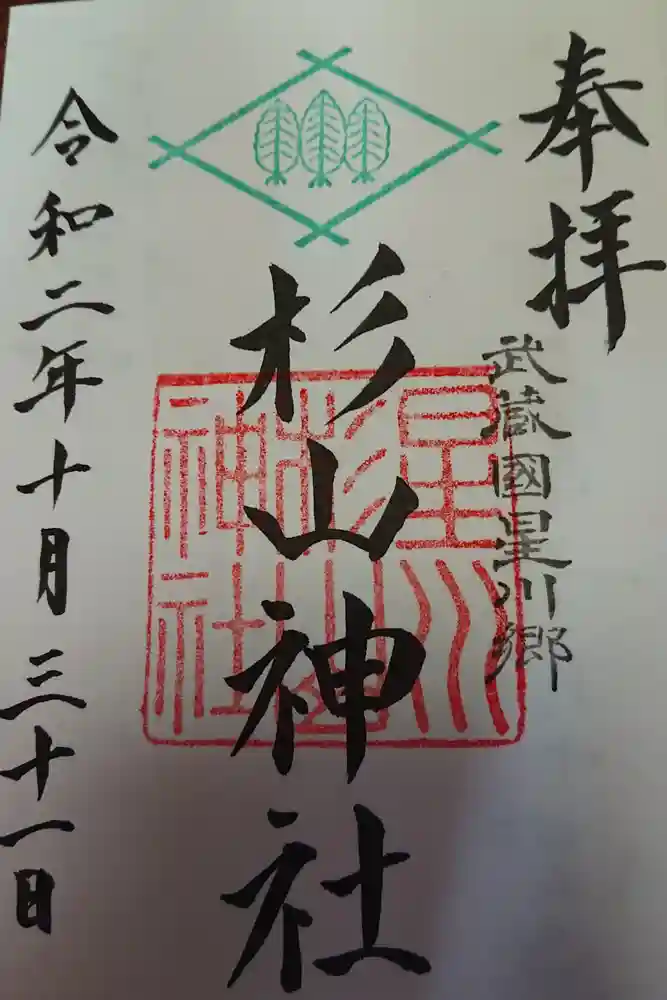 奉拝
武蔵國星川郷
杉山神社
星川
杉山
神社
令和二年十月三十一日